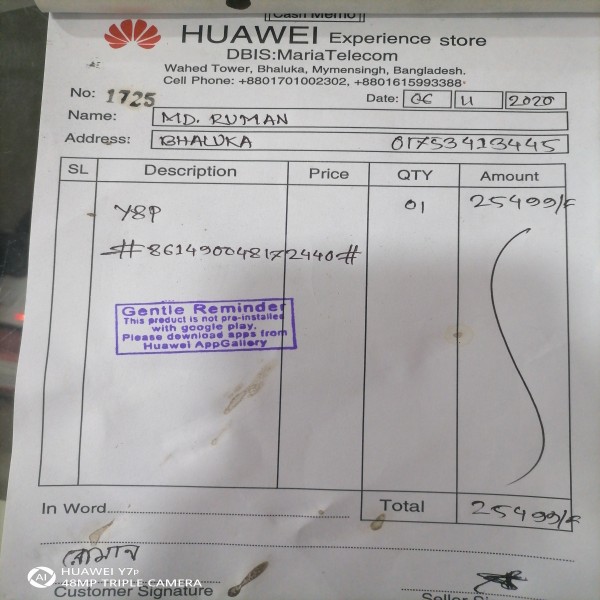 Cash Memo
HUAWEI Experience store
DBIS:MariaTelecom
Wahed Tower, Bhaluka, Mymensingh, Bangladesh.
Cell Phone: +8801701002302, +8801615993388
No: 1725 Date: 06 11 2020
Name: MD. RUMAN
Address: BHALUKA 01753413445
SL Description Price QTY Amount
Y8P 01 25499/=
#861490048172440#
Gentle Reminder
This product is not pre-installed
with google play.
Please download apps from
Huawei AppGallery
In Word Total 25499/=
রোমান
Customer Signature
HUAWEI Y7p
AI 48MP TRIPLE CAMERA